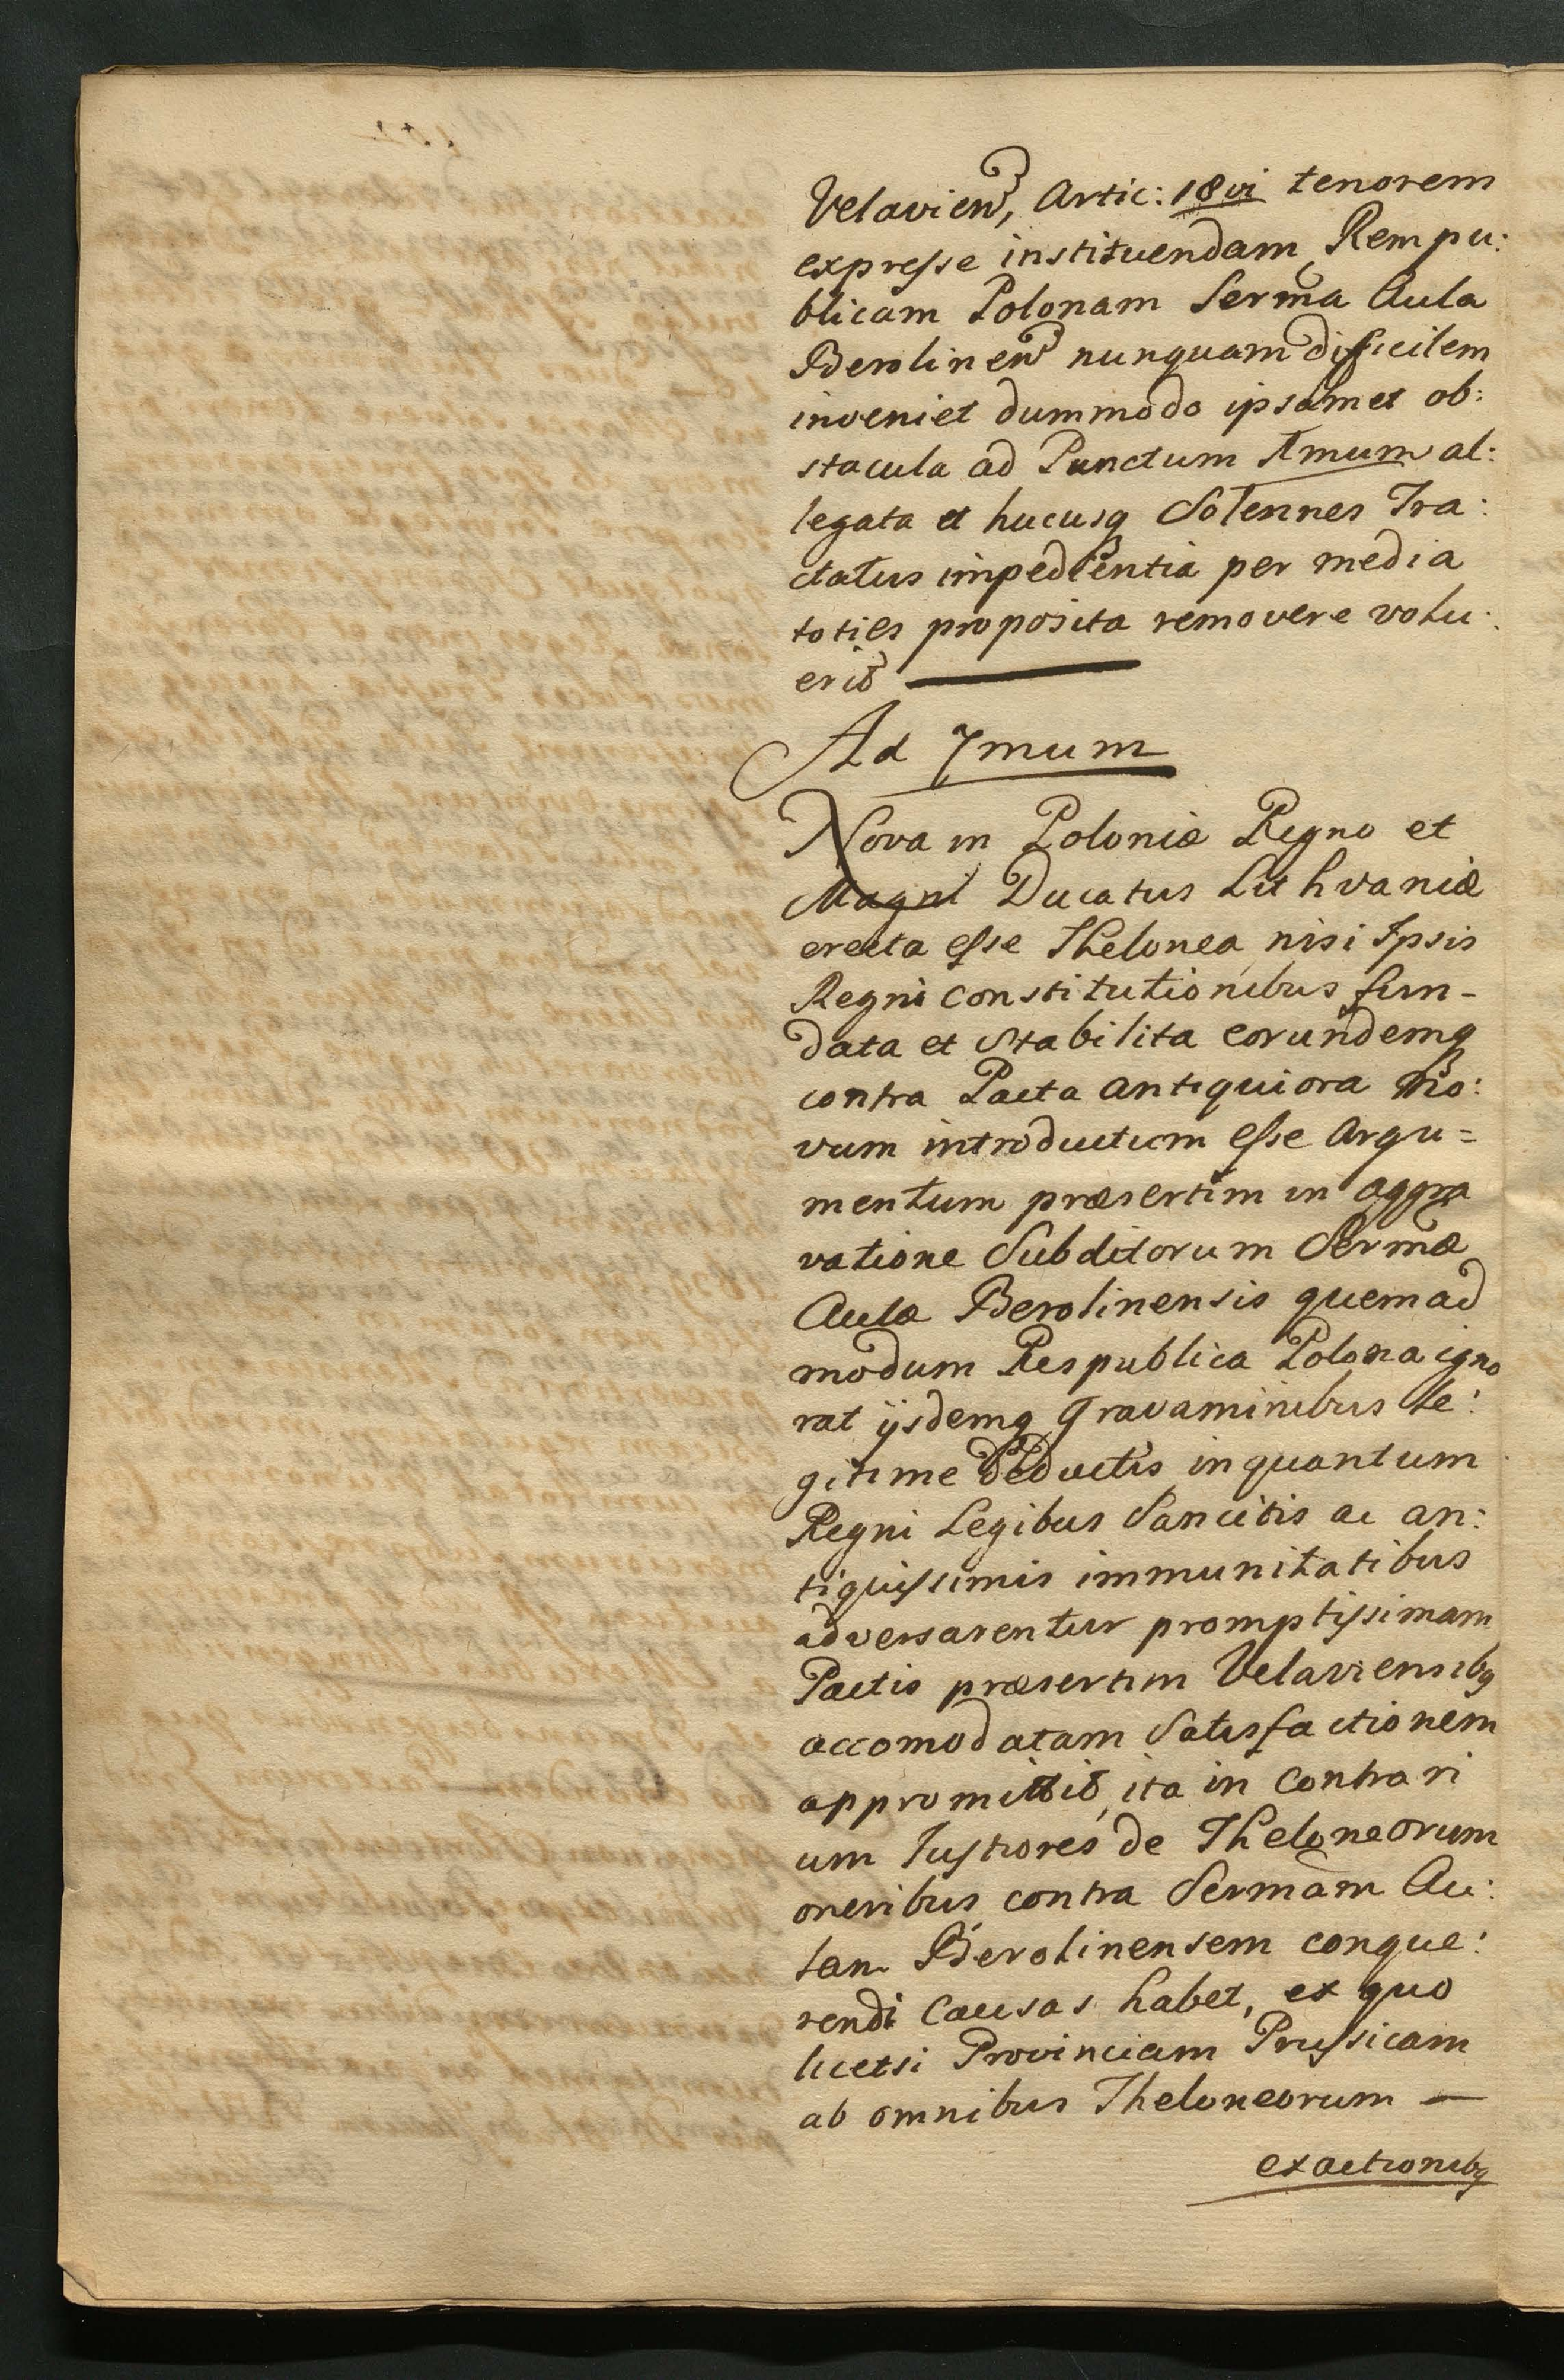 Velavien, Artic: 18vi tenorem
expresse instituendam Rempu:
blicam Polonam Serma Aula
Berolinen nunquam difficilem
inveniet dummodo ipsamet ob:
stacula ad Punctum 1mum al:
legata et hucusq Solennes Tra:
ctatus impedientia per media
toties proposita removere volu:
erit
Ad 7mum
Nova in Poloniæ Regno et
Magni Ducatus Lithvaniæ
erecta esse Thelonea, nisi Ipsis
Regni Constitutionibus fun-
data et Stabilita eorundemq
contra Pacta antiquiora no:
vum introductum esse Argu=
mentum præsertim in aggra
vatione Subditorum Sermæ
Aulæ Berolinensis quemad
modum Respublica Polona igno
rat ijsdemq Gravaminibus le:
gitime deductis inquantum
Regni Legibus Sancitis ac an:
tiquissimis immunitatibus
adversarentur promptissimam
Pactis præsertim Velaviensibq
accomodatam Satisfactionem
appromittit, ita in Contrari
um Justiores de Theloneorum
oneribus contra Sermam Au:
lam Berolinensem conque:
rendi Causas habet, ex quo
licetsi Provinciam Prussicam
ab omnibus Theloneorum —
exactionibq